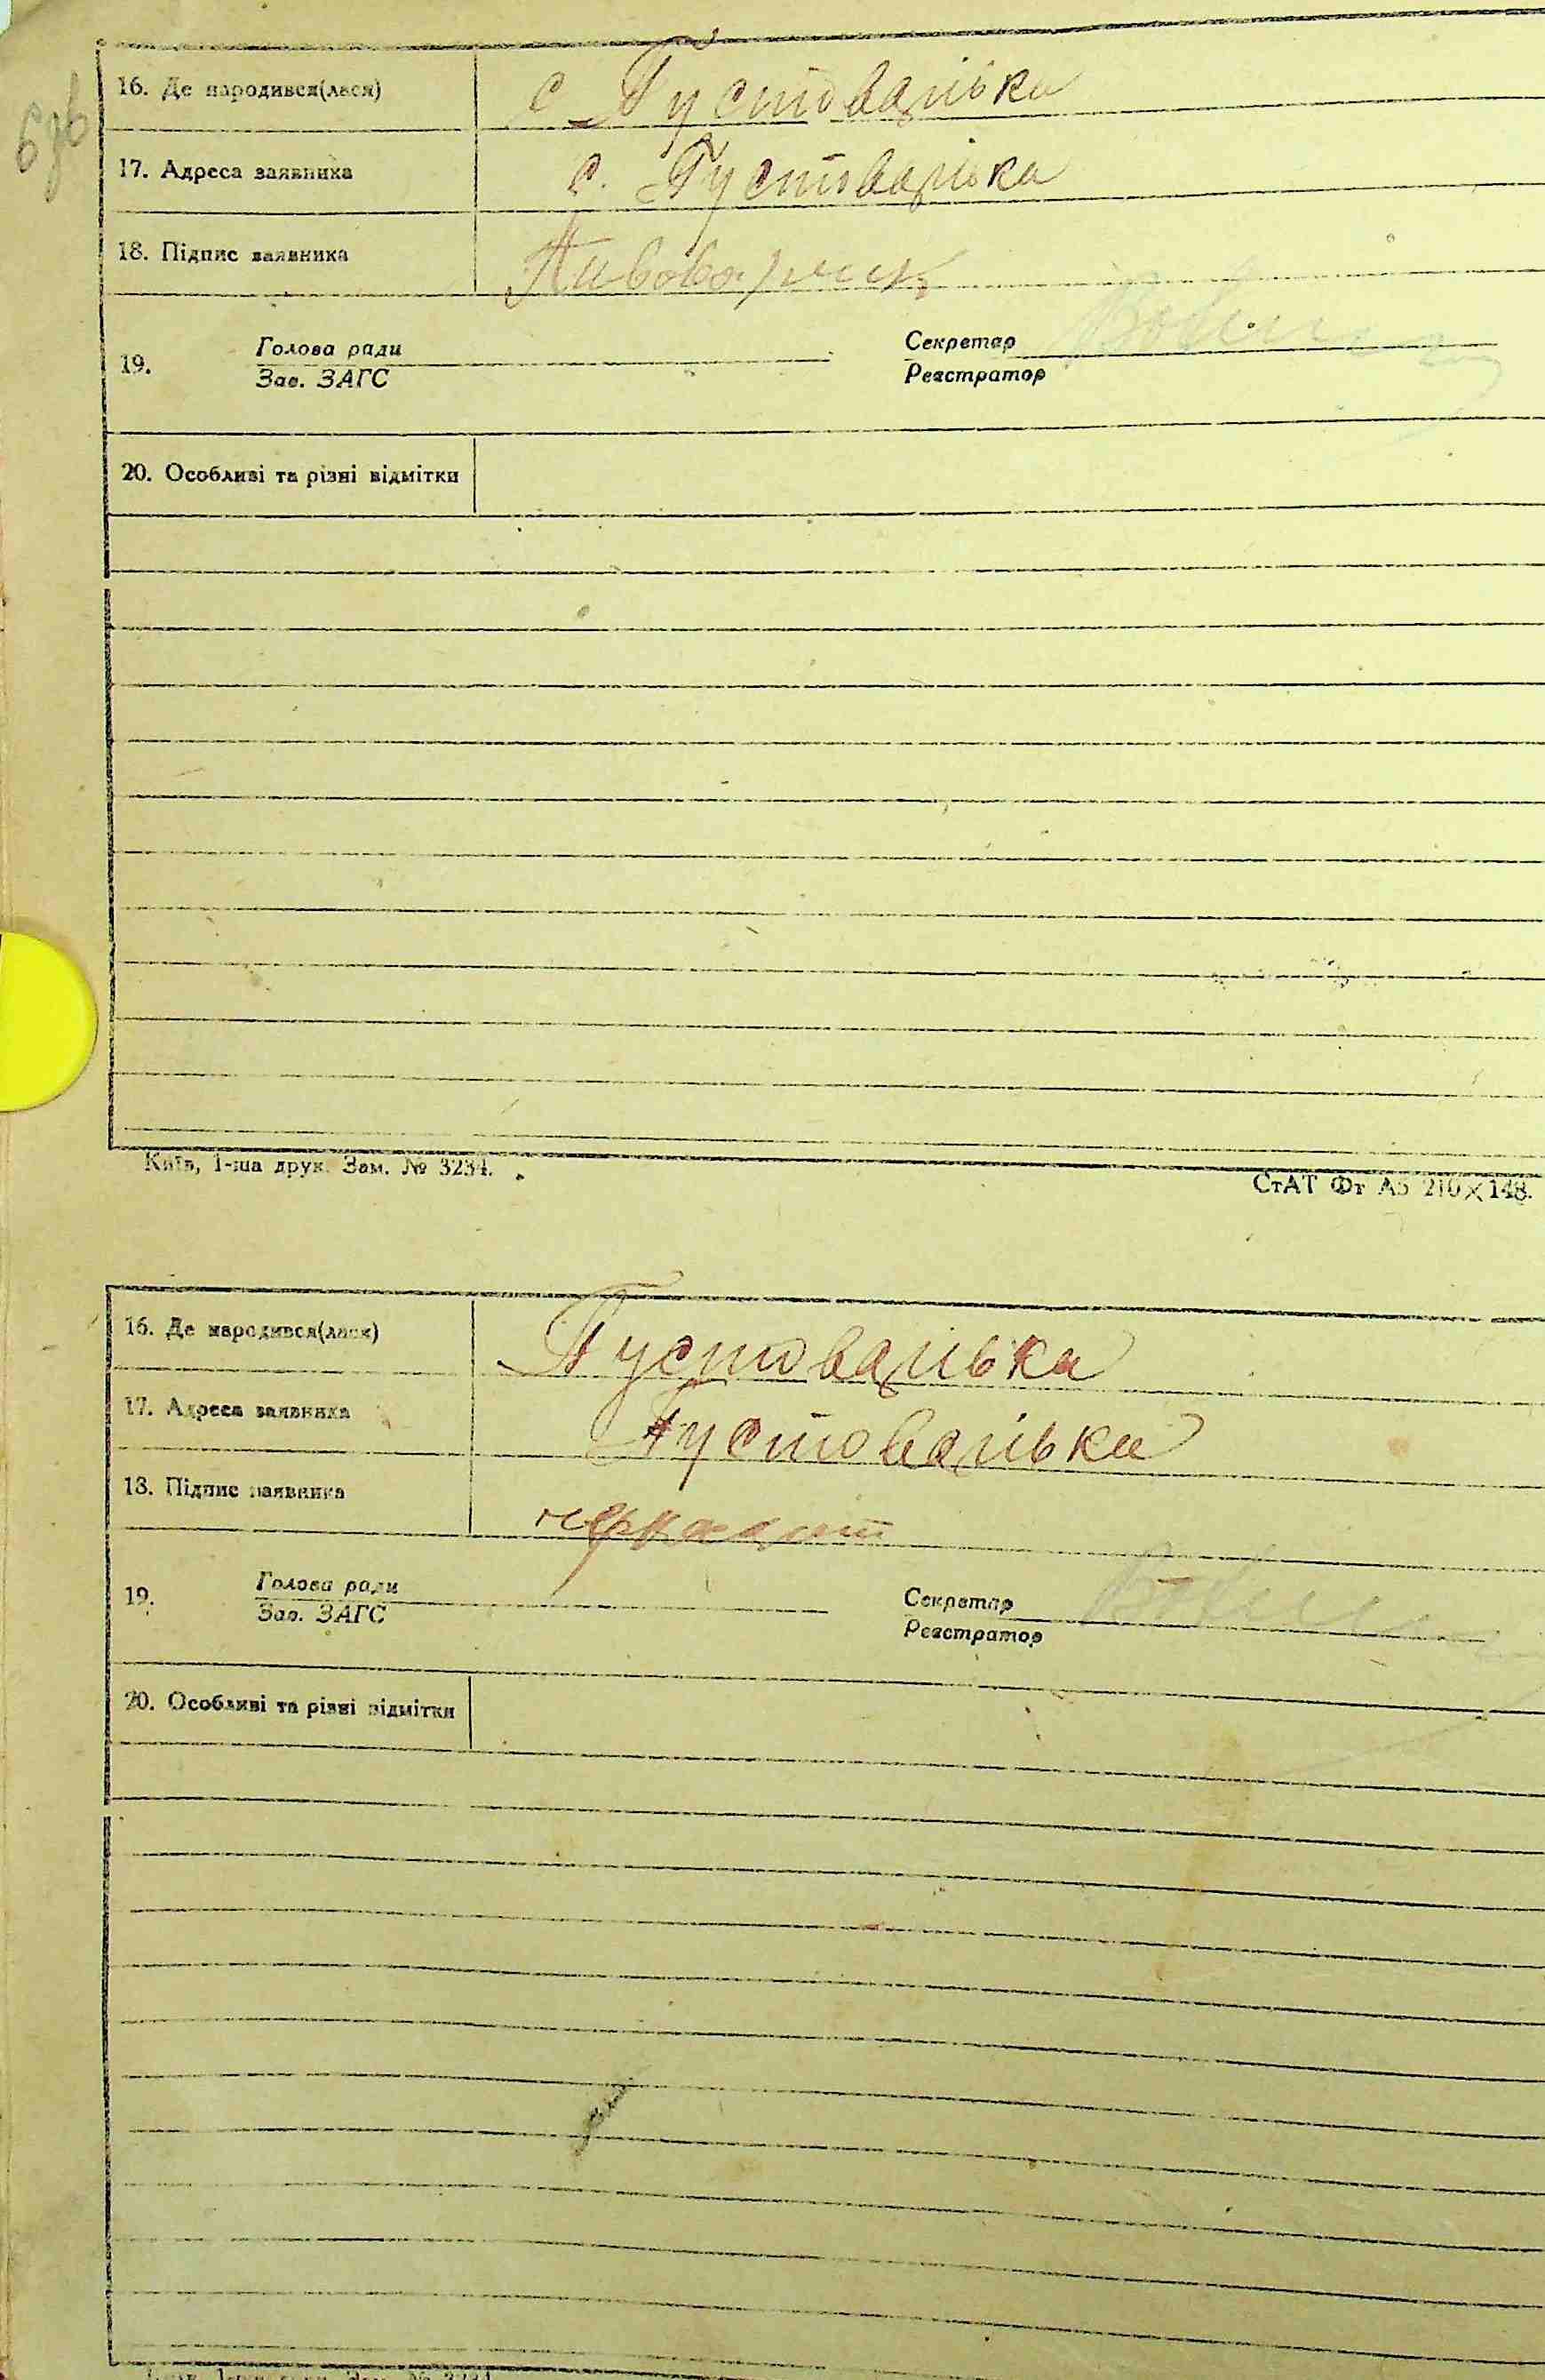 69в
16. Де народився(лася) с Пустоварівка
17. Адреса заявника с. Пустоварівка
18. Підпис заявника
19. Голова ради Секретар
Зав. ЗАГС Реєстратор
20. Особливі та різні відмітки
Київ, 1-ша друк. Зам. № 3234. СтАТ Фт А5 210×148.
16. Де народився(лася) Пустоварівка
17. Адреса заявника Пустоварівка
18. Підпис заявника
19. Голова ради Секретар
Зав. ЗАГС Реєстратор
20. Особливі та різні відмітки